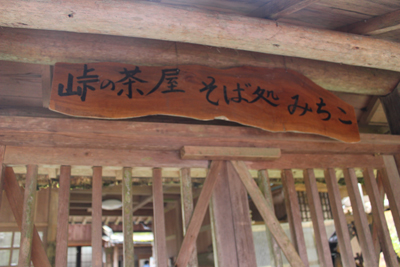 峠の茶屋 そば処 みちこ